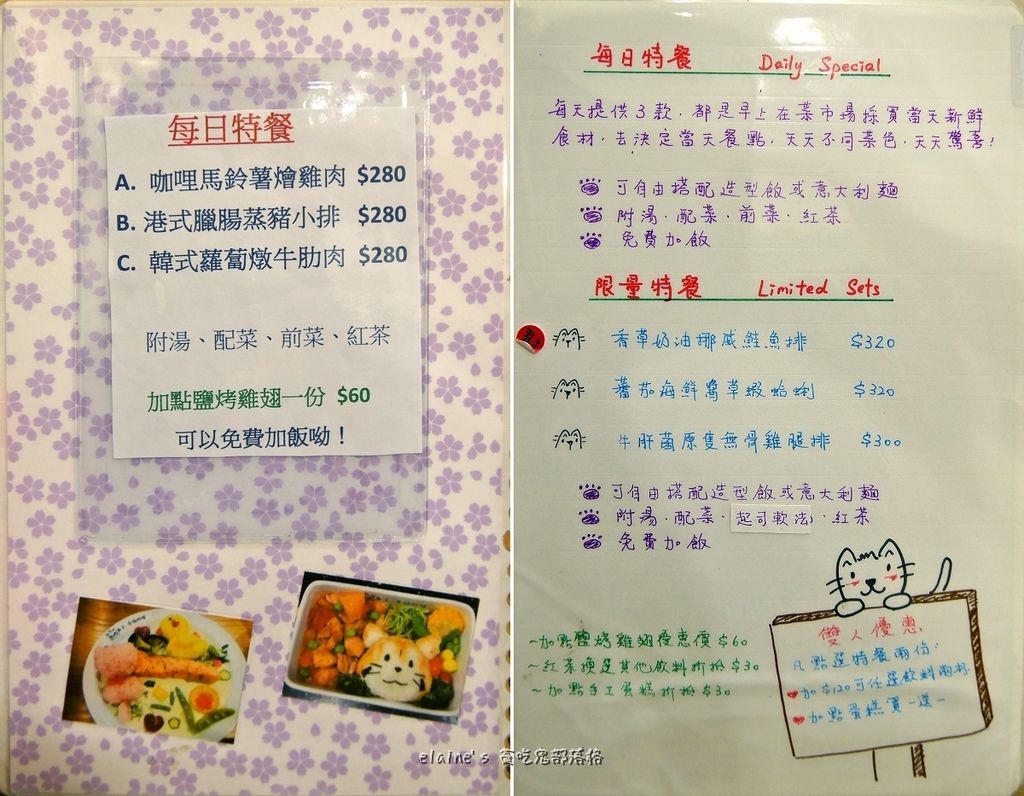 每日特餐
A. 咖哩馬鈴薯燴雞肉 $280
B. 港式臘腸蒸豬小排 $280
C. 韓式蘿蔔燉牛肋肉 $280
附湯、配菜、前菜、紅茶
加點鹽烤雞翅一份 $60
可以免費加飯呦！
每日特餐 Daily Special
每天提供3款，都是早上在菜市場採買當天新鮮
食材，去決定當天餐點，天天不同菜色，天天驚喜！
可自由搭配造型飯或意大利麵
附湯．配菜．前菜．紅茶
免費加飯
限量特餐 Limited Sets
香草奶油挪威鮭魚排 $320
蕃茄海鮮醬草蝦蛤蜊 $320
牛肝菌原隻無骨雞腿排 $300
可自由搭配造型飯或意大利麵
附湯．配菜．起司軟法．紅茶
免費加飯
~加點鹽烤雞翅優惠價$60
~紅茶換其他飲料折抵$30
~加點手工蛋糕折抵$30
雙人優惠
凡點選特餐兩份:
加$120可任選飲料兩杯
加點蛋糕買一送一
elaine's 貪吃鬼部落格